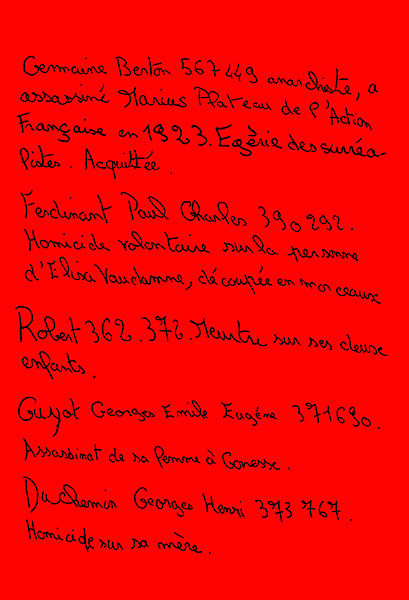 Germaine Berton 567449 anarchiste, a
assassiné Marius Plateau de l'Action
Française en 1923. Egérie des surréa-
listes. Acquittée.
Ferdinant Paul Charles 390292.
Homicide volontaire sur la personne
d'Elisa Vaudamne, découpée en morceaux
Robert 362.372. Meurtre sur ses deux
enfants.
Guyot Georges Emile Eugène 371690.
Assassinat de sa femme à Gonesse.
Duchemin Georges Henri 373767.
Homicide sur sa mère.